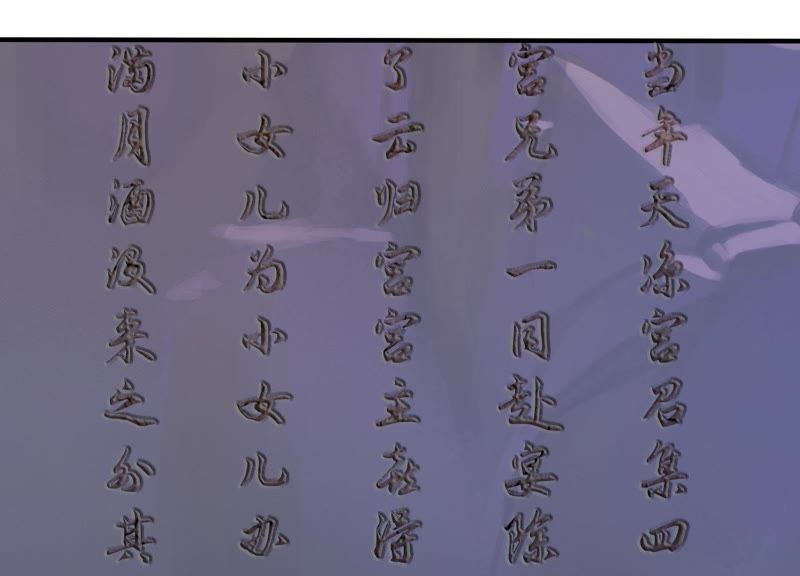 当年天凉宫召集四
宫兄弟一同赴宴除
了云归宫宫主喜得
小女儿为小女儿办
满月酒没来之外其